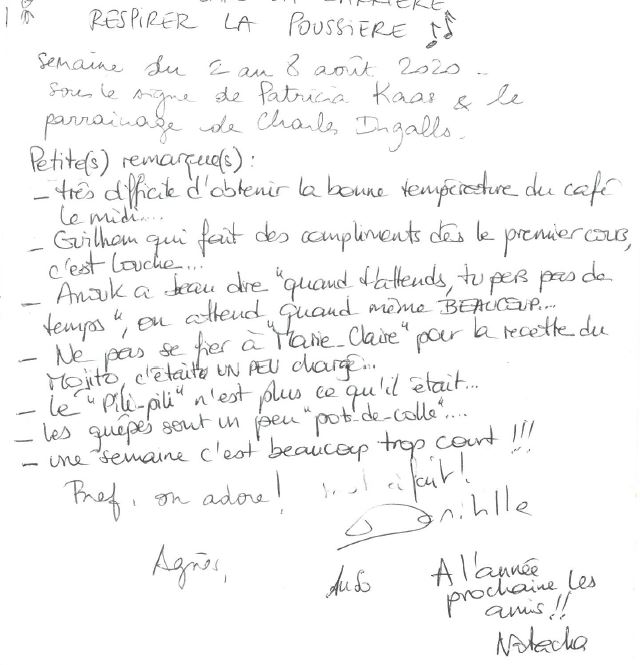 RESPIRER LA POUSSIERE
semaine du 2 au 8 août 2020..
sous le signe de Patricia Kaas & le
parrainage de Charles Ingalls.
Petite(s) remarque(s) :
- très difficile d'obtenir la bonne température du café
le midi....
- Guilhem qui fait des compliments dès le premier cours,
c'est louche...
- Anouk a beau dire "quand t'attends, tu perds pas de
temps", on attend quand même BEAUCOUP...
- Ne pas se fier à "Marie-Claire" pour la recette du
Mojito, c'était UN PEU chargé...
- le "Pili-pili" n'est plus ce qu'il était...
- les guêpes sont un peu "pot-de-colle"....
- une semaine c'est beaucoup trop court !!!
Bref, on adore !
à fait !
Agnès,
A l'année
prochaine les
amis !!
Natacha